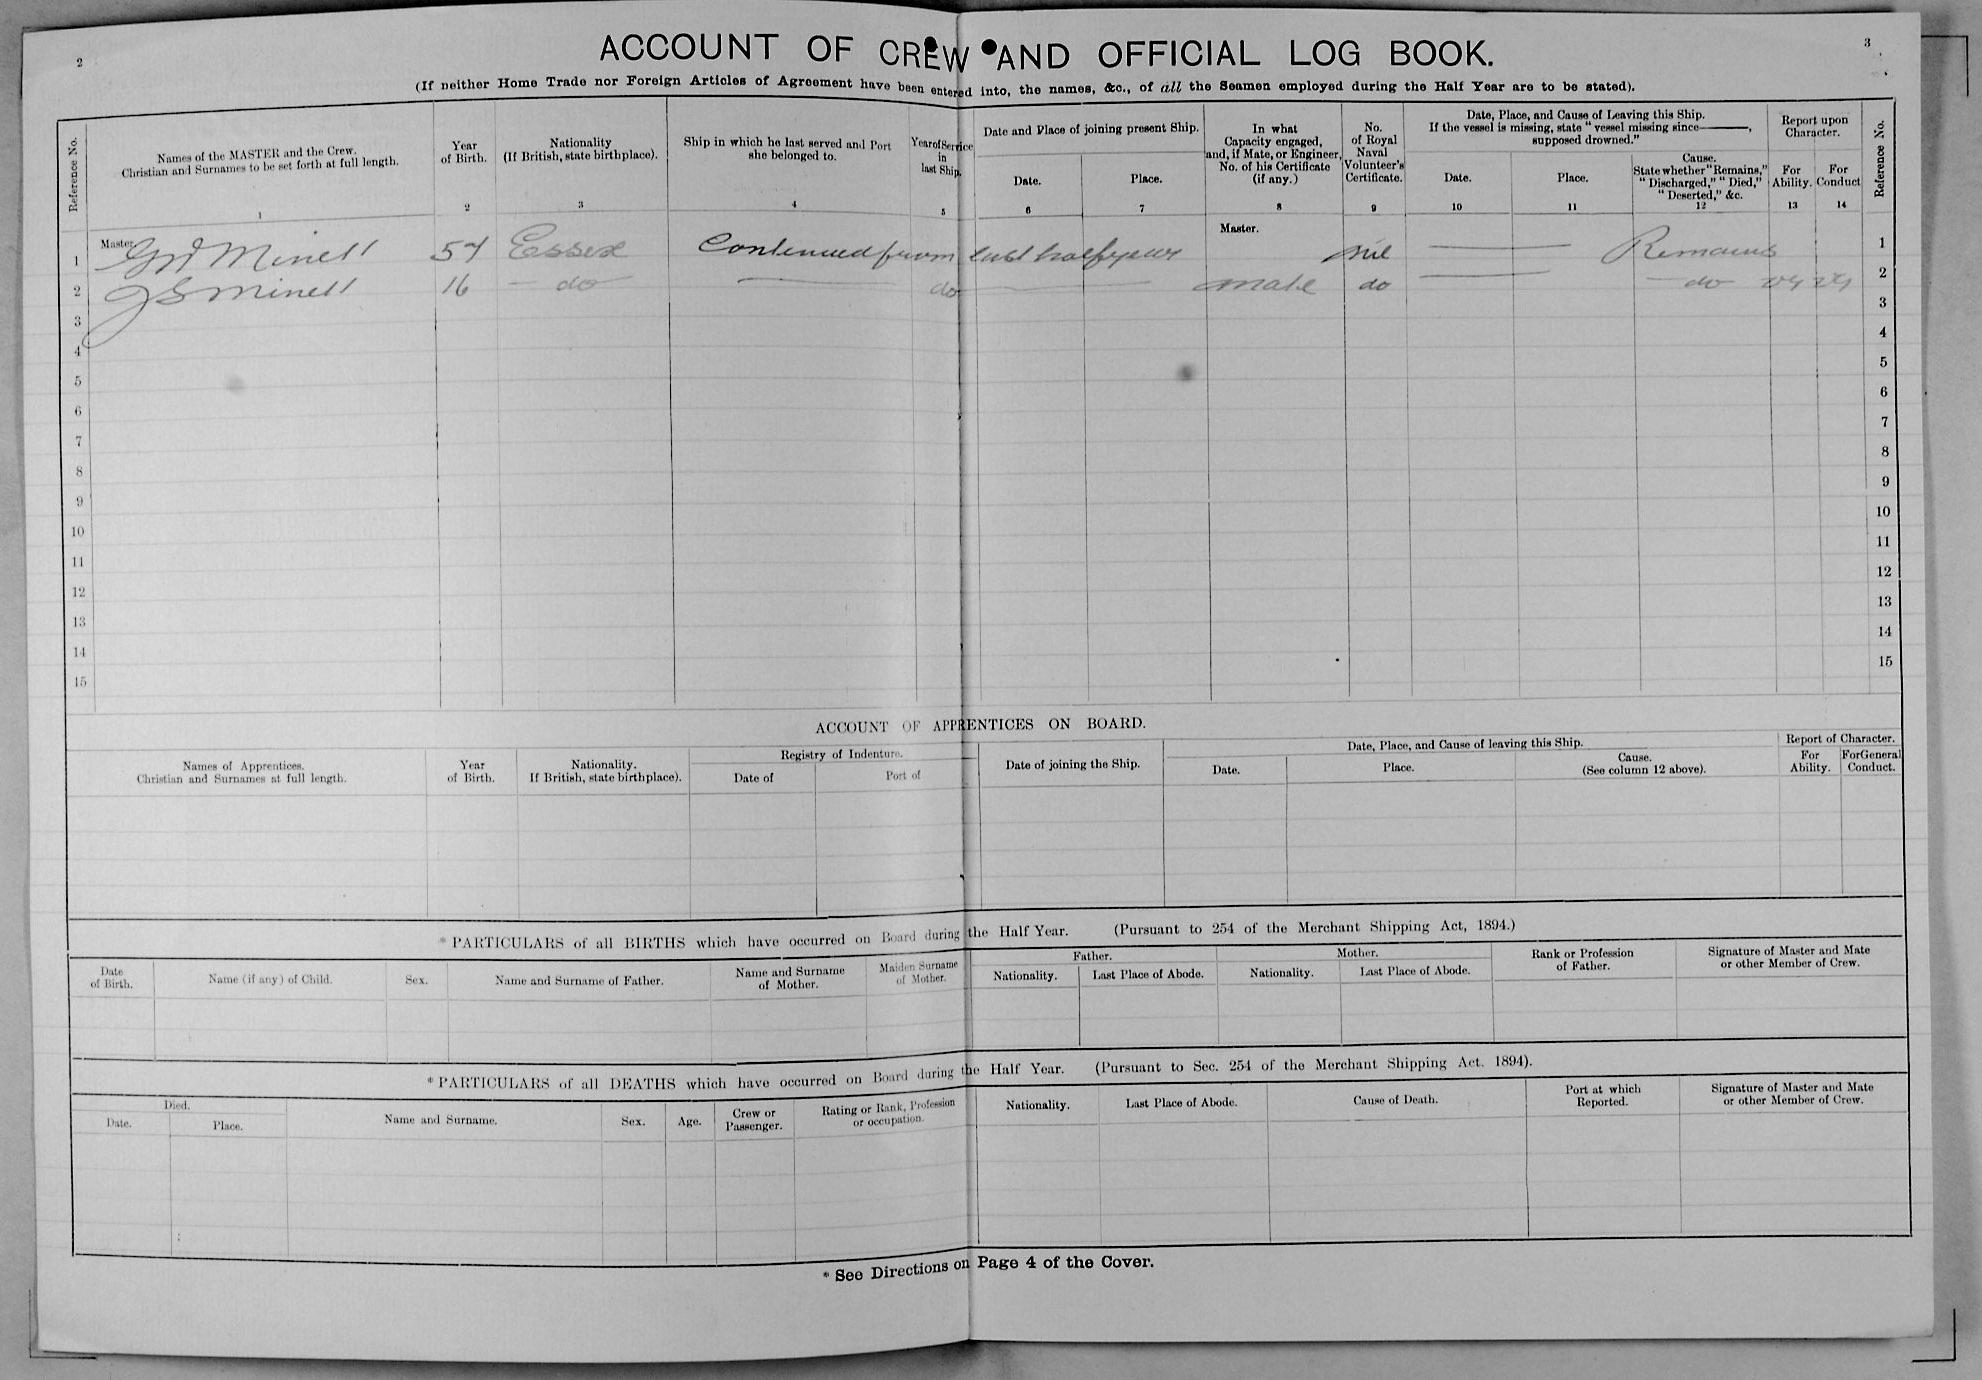 2
3
ACCOUNT OF CREW AND OFFICIAL LOG BOOK.
(If neither Home Trade nor Foreign Articles of Agreement have been entered into, the names, &c., of all the Seamen employed during the Half Year are to be stated).
Reference No.
Names of the MASTER and the Crew.
Christian and Surnames to be set forth at full length.
1
Year
of Birth.
2
Nationality
(If British, state birthplace).
3
Ship in which he last served and Port
she belonged to.
4
Year of Service
in
last Ship.
5
Date and Place of joining present Ship.
Date.
6
Place.
7
In what
Capacity engaged,
and, if Mate, or Engineer,
No. of his Certificate
(if any.)
8
No.
of Royal
Naval
Volunteer's
Certificate.
9
Date, Place, and Cause of Leaving this Ship.
If the vessel is missing, state "vessel missing since———,
supposed drowned."
Date.
10
Place.
11
Cause.
State whether "Remains,"
"Discharged," "Died,"
"Deserted," &c.
12
Report upon
Character.
For
Ability.
13
For
Conduct
14
Reference No.
1 Master. Minell 57 Essex Continued from last half year Master. nil Remains 1
2 J S Minell 16 do do mate do do vg vg 2
3 3
4 4
5 5
6 6
7 7
8 8
9 9
10 10
11 11
12 12
13 13
14 14
15 15
ACCOUNT OF APPRENTICES ON BOARD.
Names of Apprentices.
Christian and Surnames at full length.
Year
of Birth.
Nationality.
If British, state birthplace).
Registry of Indenture.
Date of
Port of
Date of joining the Ship.
Date, Place, and Cause of leaving this Ship.
Date.
Place.
Cause.
(See column 12 above).
Report of Character.
For
Ability.
For General
Conduct.
* PARTICULARS of all BIRTHS which have occurred on Board during the Half Year. (Pursuant to 254 of the Merchant Shipping Act, 1894.)
Date
of Birth.
Name (if any) of Child.
Sex.
Name and Surname of Father.
Name and Surname
of Mother.
Maiden Surname
of Mother.
Father.
Nationality.
Last Place of Abode.
Mother.
Nationality.
Last Place of Abode.
Rank or Profession
of Father.
Signature of Master and Mate
or other Member of Crew.
* PARTICULARS of all DEATHS which have occurred on Board during the Half Year. (Pursuant to Sec. 254 of the Merchant Shipping Act. 1894).
Died.
Date.
Place.
Name and Surname.
Sex.
Age.
Crew or
Passenger.
Rating or Rank, Profession
or occupation.
Nationality.
Last Place of Abode.
Cause of Death.
Port at which
Reported.
Signature of Master and Mate
or other Member of Crew.
* See Directions on Page 4 of the Cover.